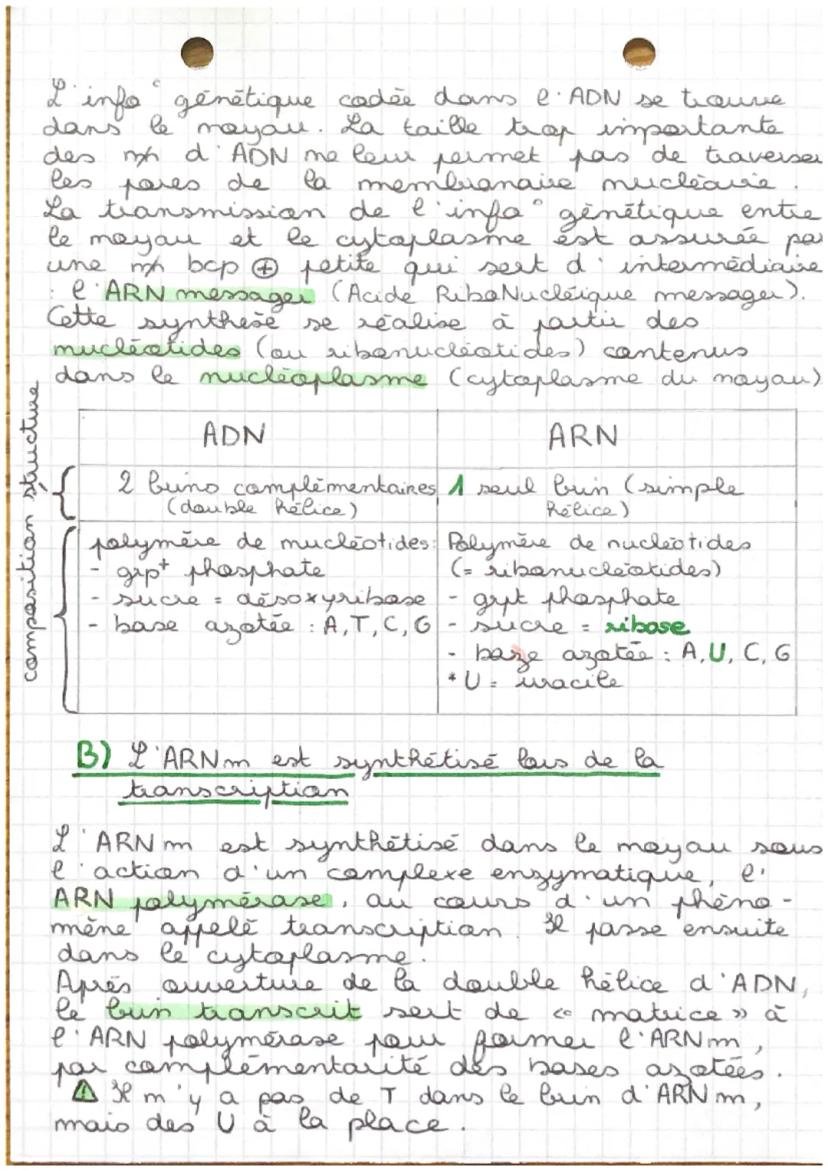 L'info° génétique codée dans l'ADN se trouve
dans le noyau. La taille trop importante
des mh d'ADN ne leur permet pas de traverser
les pores de la membranaire nucléaire.
La transmission de l'info° génétique entre
le noyau et le cytoplasme est assurée par
une mh bcp ⊕ petite qui sert d'intermédiaire
: l'ARN messager (Acide RiboNucléique messager).
Cette synthèse se réalise à partir des
nucléotides (ou ribonucléotides) contenus
dans le nucléoplasme (cytoplasme du noyau)
composition structure
ADN ARN
2 brins complémentaires 1 seul brin (simple
(double hélice) hélice)
polymère de nucléotides: Polymère de nucléotides
- grpt phosphate (= ribonucléotides)
- sucre = désoxyribose - grpt phosphate
- base azotée : A, T, C, G - sucre = ribose
- base azotée : A, U, C, G
* U = uracile
B) L'ARNm est synthétisé lors de la
transcription
L'ARNm est synthétisé dans le noyau sous
l'action d'un complexe enzymatique, l'
ARN polymérase, au cours d'un phéno-
mène appelé transcription. Il passe ensuite
dans le cytoplasme.
Après ouverture de la double hélice d'ADN,
le brin transcrit sert de « matrice » à
l'ARN polymérase pour former l'ARNm,
par complémentarité des bases azotées.
⚠ Il n'y a pas de T dans le brin d'ARNm,
mais des U à la place.